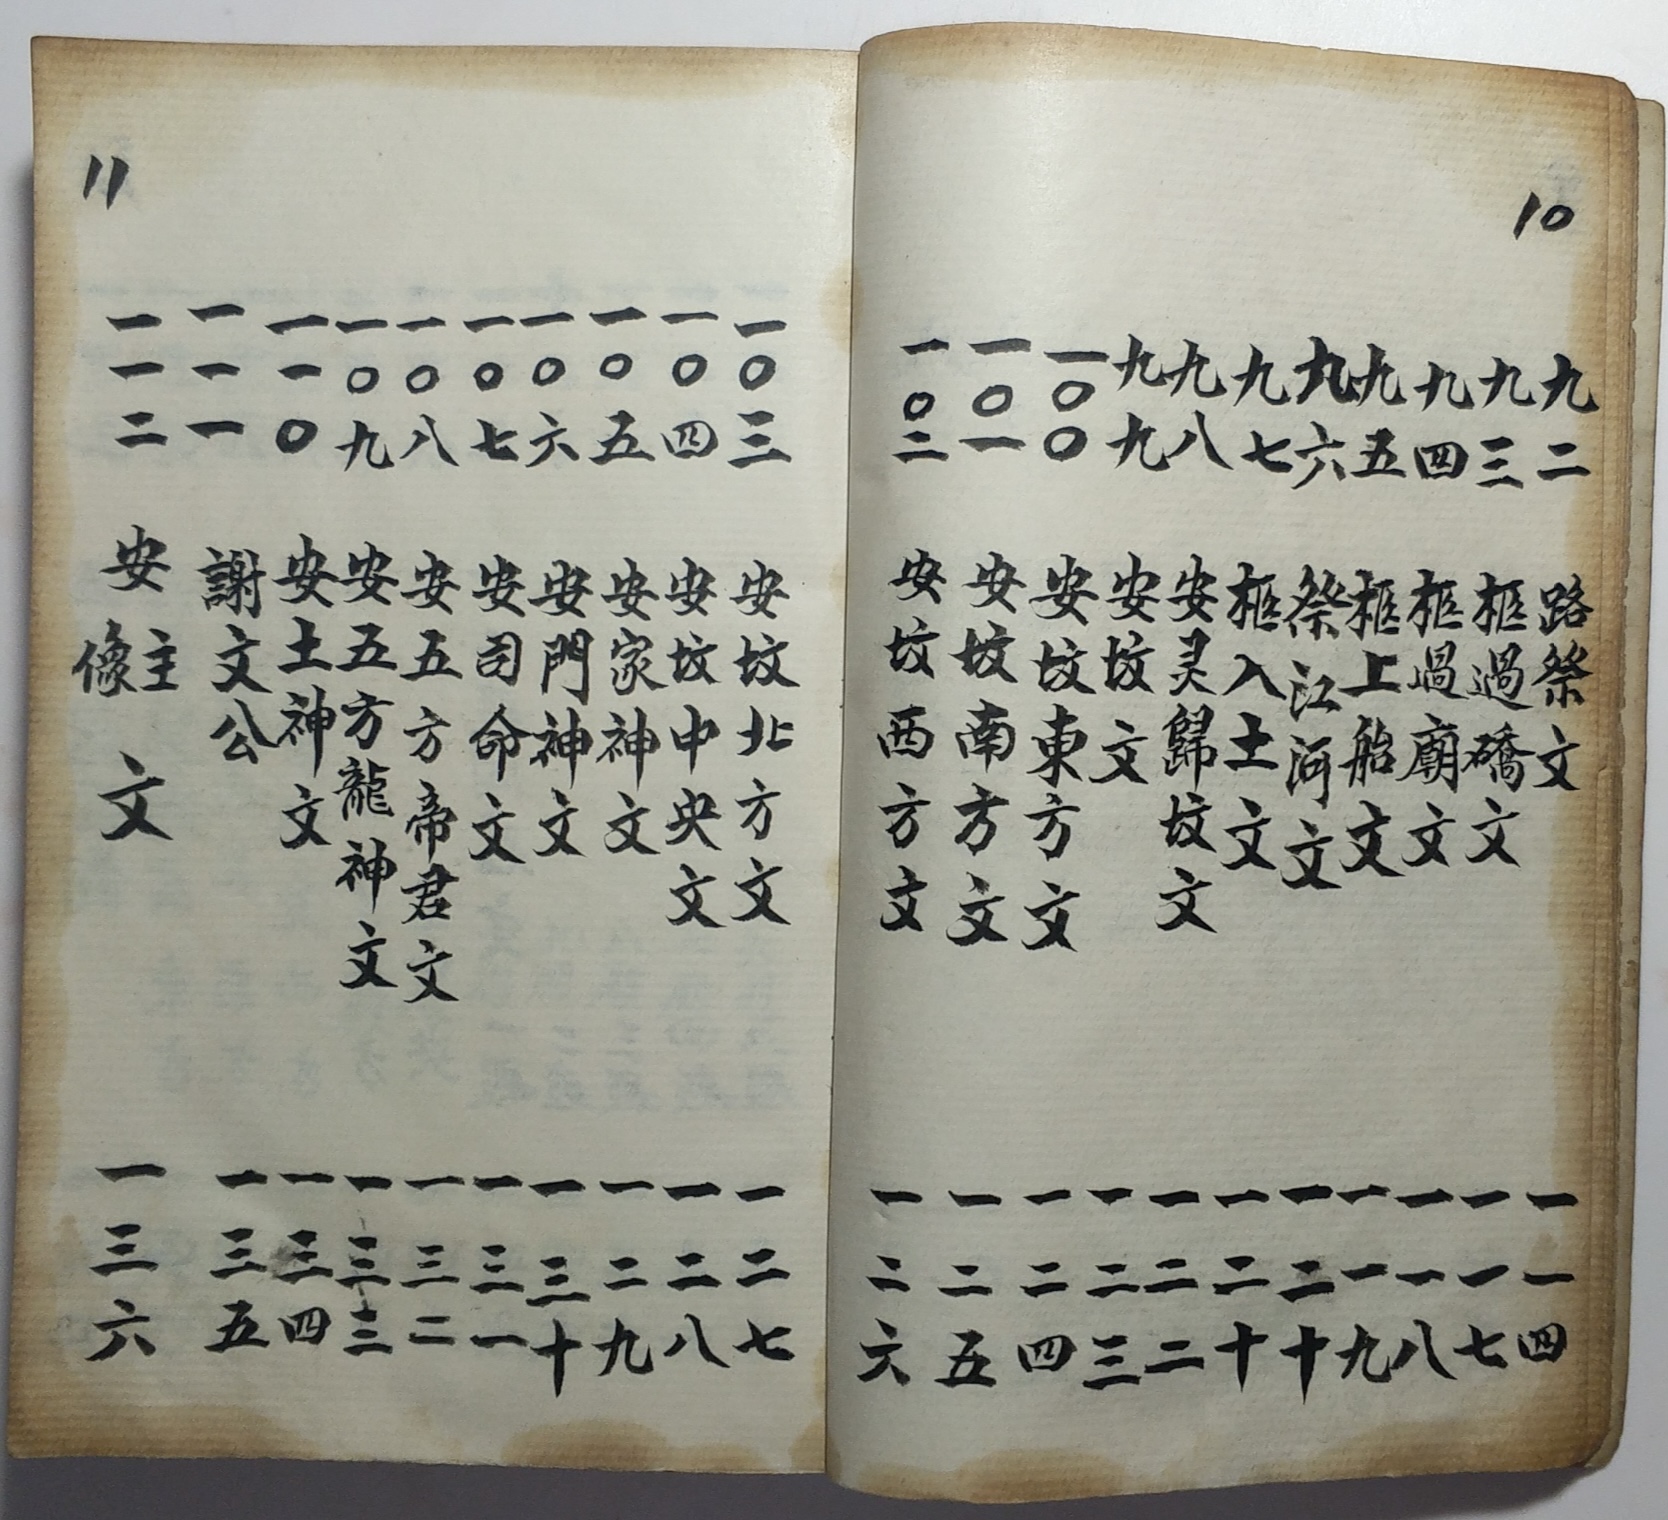 10
九二 路祭文 一一四
九三 柩過礄文 一一七
九四 柩過廟文 一一八
九五 柩上船文 一一九
九六 祭江河文 一二十
九七 柩入土文 一二十
九八 安灵歸坟文 一二二
九九 安坟文 一二三
一〇〇 安坟東方文 一二四
一〇一 安坟南方文 一二五
一〇二 安坟西方文 一二六
11
一〇三 安坟北方文 一二七
一〇四 安坟中央文 一二八
一〇五 安家神文 一二九
一〇六 安門神文 一三十
一〇七 安司命文 一三一
一〇八 安五方帝君文 一三二
一〇九 安五方龍神文 一三三
一一〇 安土神文 一三四
一一一 謝文公 一三五
一一二 安主像文 一三六